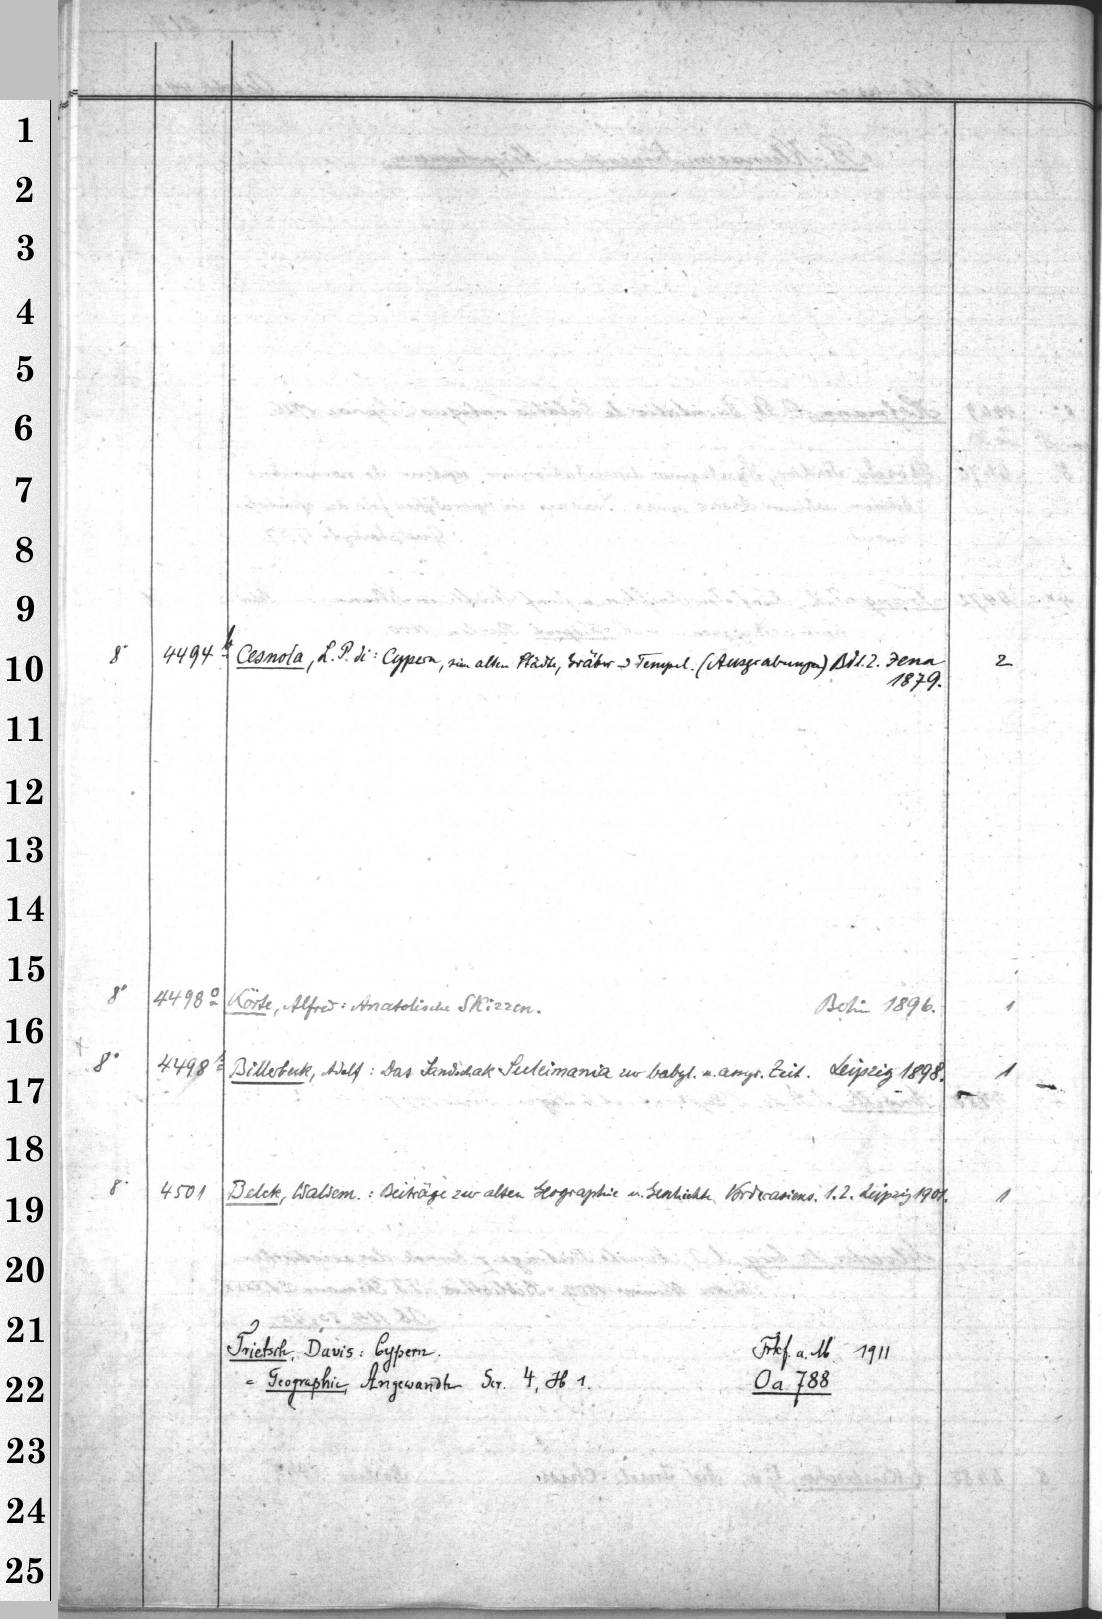 1
2
3
4
5
6
7
8
9
10
11
12
13
14
15
16
17
18
19
20
21
22
23
24
25
8° 4494 b Cesnola, L. P. di: Cypern, seine alten Städte, Gräber u. Tempel. (Ausgrabungen) Bd 1.2. Jena 2
1879.
8° 4498 a Körte, Alfred: Anatolische Skizzen. Berlin 1896. 1
8° 4498 b Billerbeck, Adolf: Das Sandschak Suleimania zur babyl. u. assyr. Zeit. Leipzig 1898. 1
8° 4501 Belck, Waldem.: Beiträge zur alten Geographie u. Geschichte Vorderasiens. 1.2. Leipzig 1901. 1
Trietsch, Davis: Cypern. Frkf. a. M. 1911
= Geographie, Angewandte Ser. 4, H 1. Oa 788